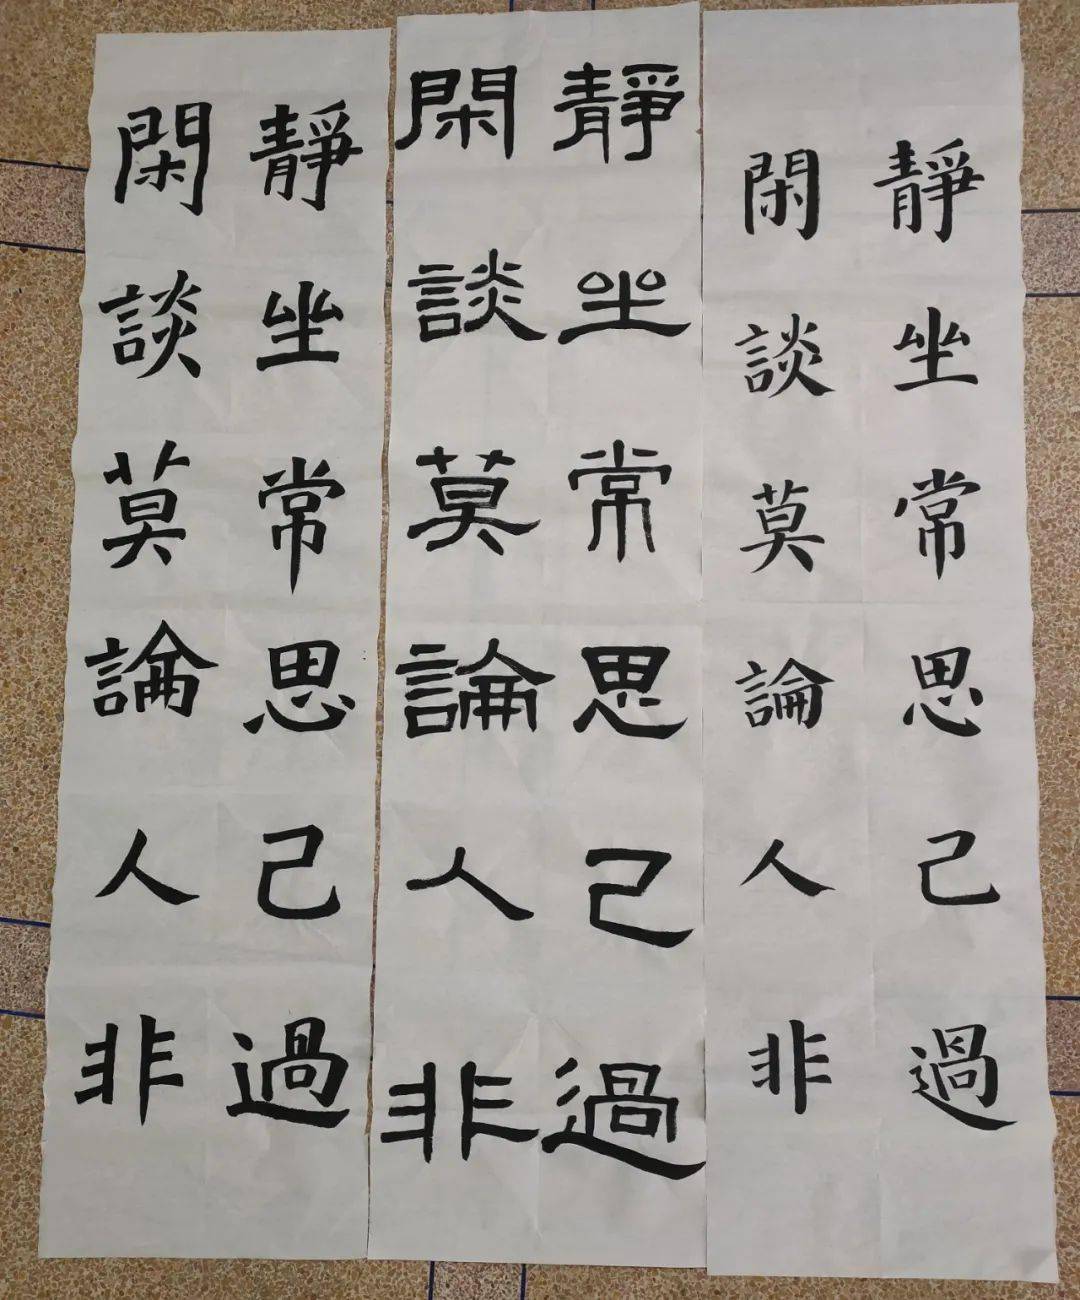 靜坐常思己過
閑談莫論人非
靜坐常思己過
閑談莫論人非
靜坐常思己過
閑談莫論人非